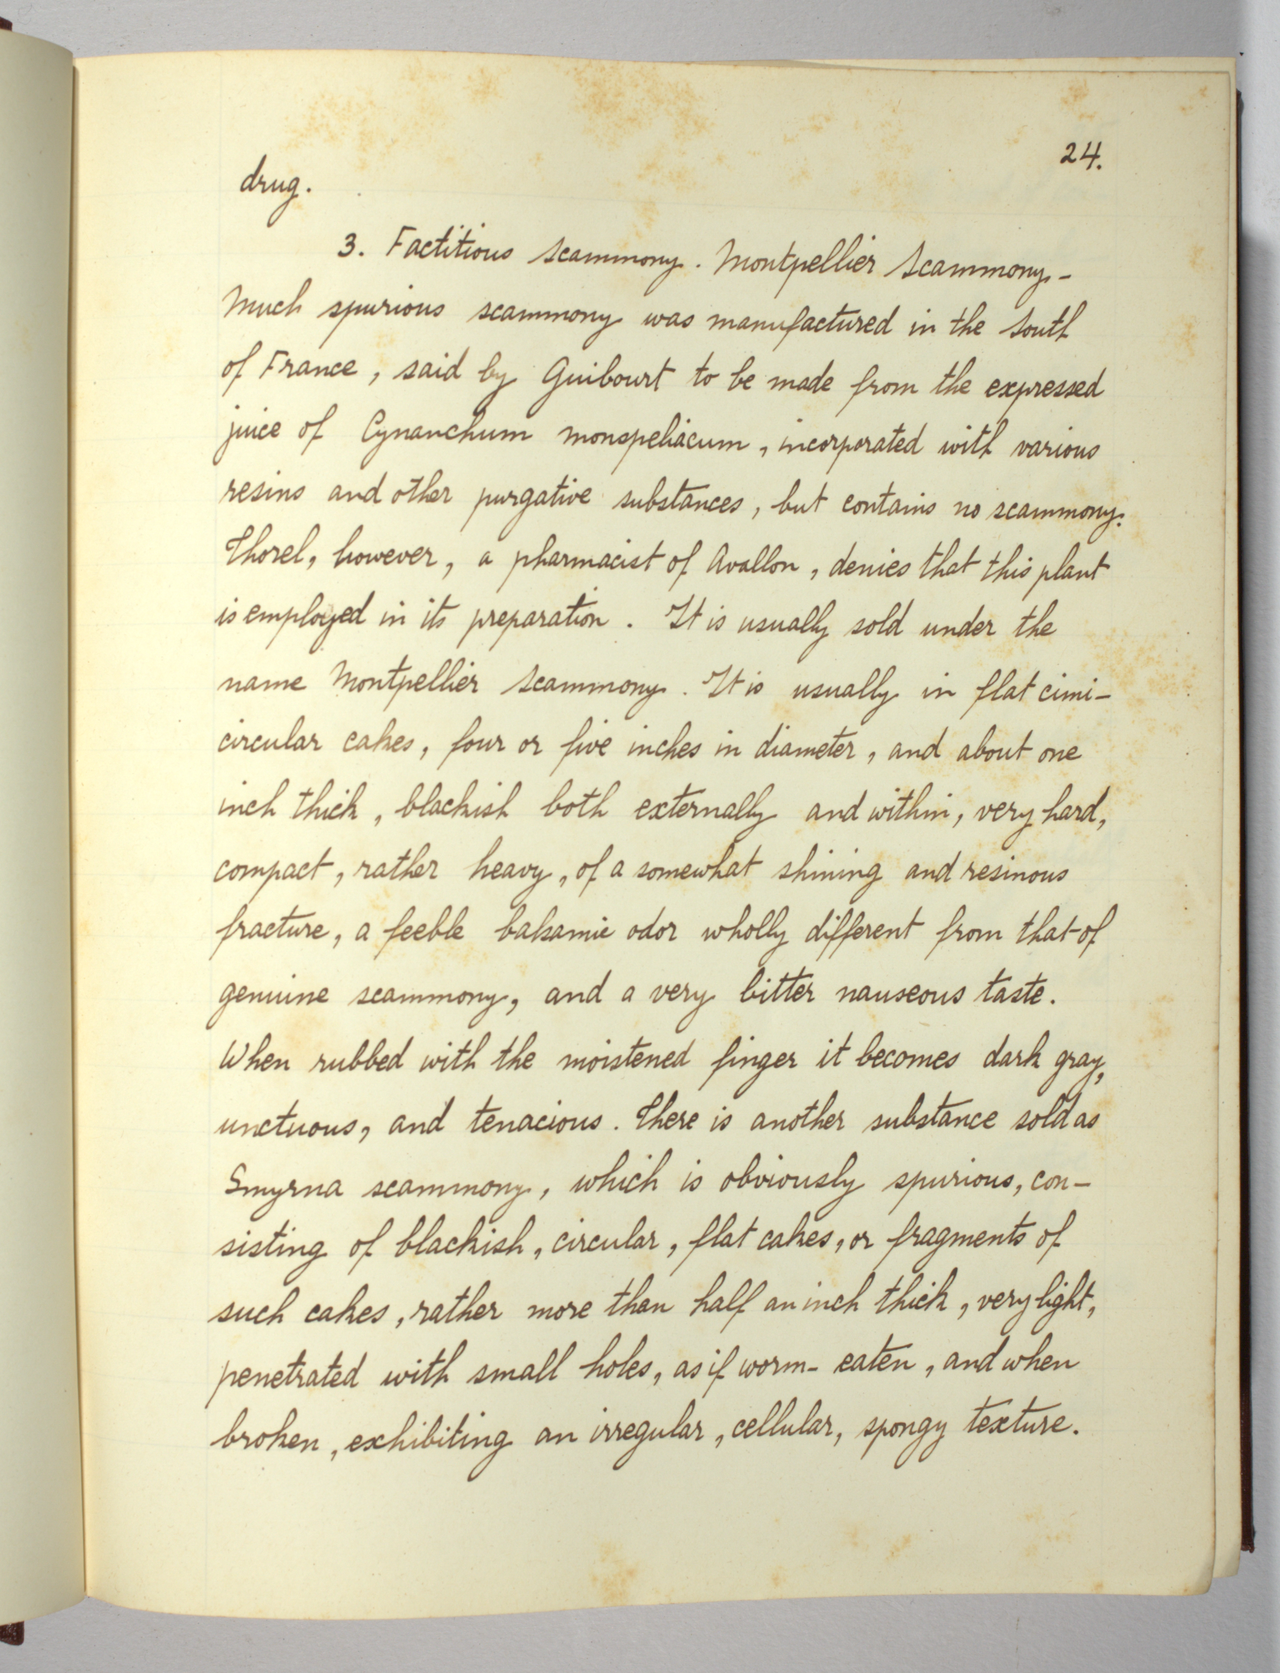 24.
drug.
3. Factitious Scammony. Montpellier Scammony-
Much spurious scammony was manufactured in the South
of France, said by Guibourt to be made from the expressed
juice of Cynanchum monspeliacum, incorporated with various
resins and other purgative substances, but contains no scammony.
Thorel, however, a pharmacist of Avallon, denies that this plant
is employed in its preparation. It is usually sold under the
name Montpellier Scammony. It is usually in flat cimi-
circular cakes, four or five inches in diameter, and about one
inch thick, blackish both externally and within, very hard,
compact, rather heavy, of a somewhat shining and resinous
fracture, a feeble balsamic odor wholly different from that of
genuine scammony, and a very bitter nauseous taste.
When rubbed with the moistened finger it becomes dark gray,
unctuous, and tenacious. There is another substance sold as
Smyrna scammony, which is obviously spurious, con-
sisting of blackish, circular, flat cakes, or fragments of
such cakes, rather more than half an inch thick, very light,
penetrated with small holes, as if worm-eaten, and when
broken, exhibiting an irregular, cellular, spongy texture.